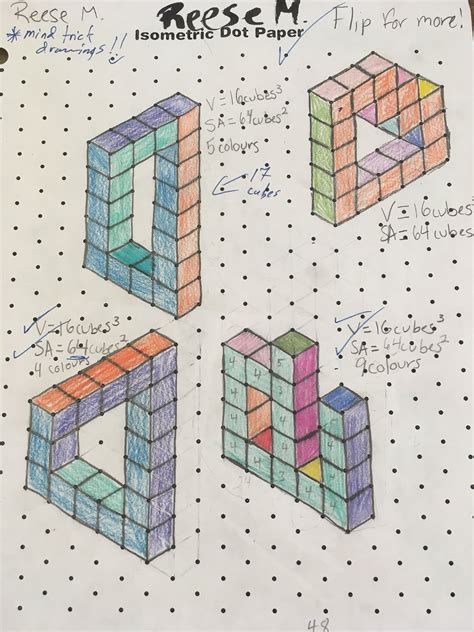 Reese M.
* mind trick
drawings!!
Reese M.
Isometric Dot Paper
Flip for more!
V=16cubes³
SA=64cubes²
5 colours
17
cubes
V=16cubes³
SA=64cubes
V=16cubes³
SA=64cubes²
4 colours
V=16cubes³
SA=64cubes²
9 colours
4 5
4 4
4
4 4
4 3 4
24
48